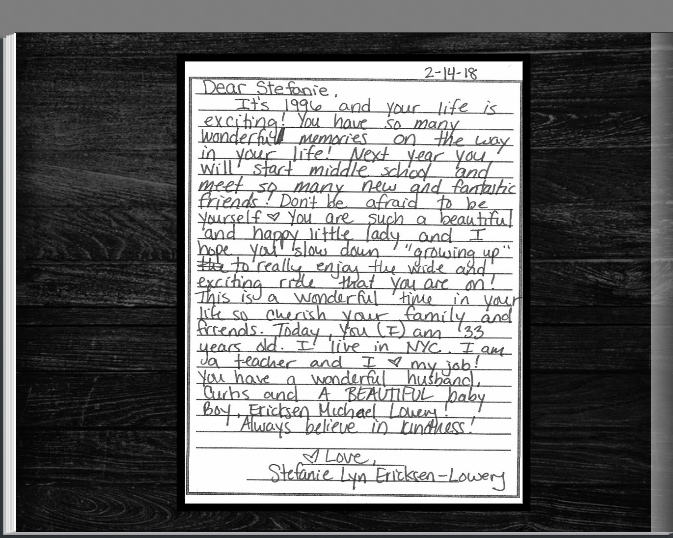 2-14-18
Dear Stefanie,
It's 1996 and your life is
exciting! You have so many
wonderful memories on the way
in your life! Next year you
will start middle school and
meet so many new and fantastic
friends! Don't be afraid to be
yourself ♡ You are such a beautiful
and happy little lady and I
hope you slow down "growing up"
to really enjoy the wide and
exciting ride that you are on!
This is a wonderful time in your
life so cherish your family and
friends. Today, You (I) am 33
years old. I live in NYC. I am
a teacher and I ♡ my job!
You have a wonderful husband,
Curbs and A BEAUTIFUL baby
Boy, Ericksen Michael Lowery!
Always believe in kindness!
♡ Love,
Stefanie Lyn Ericksen-Lowery